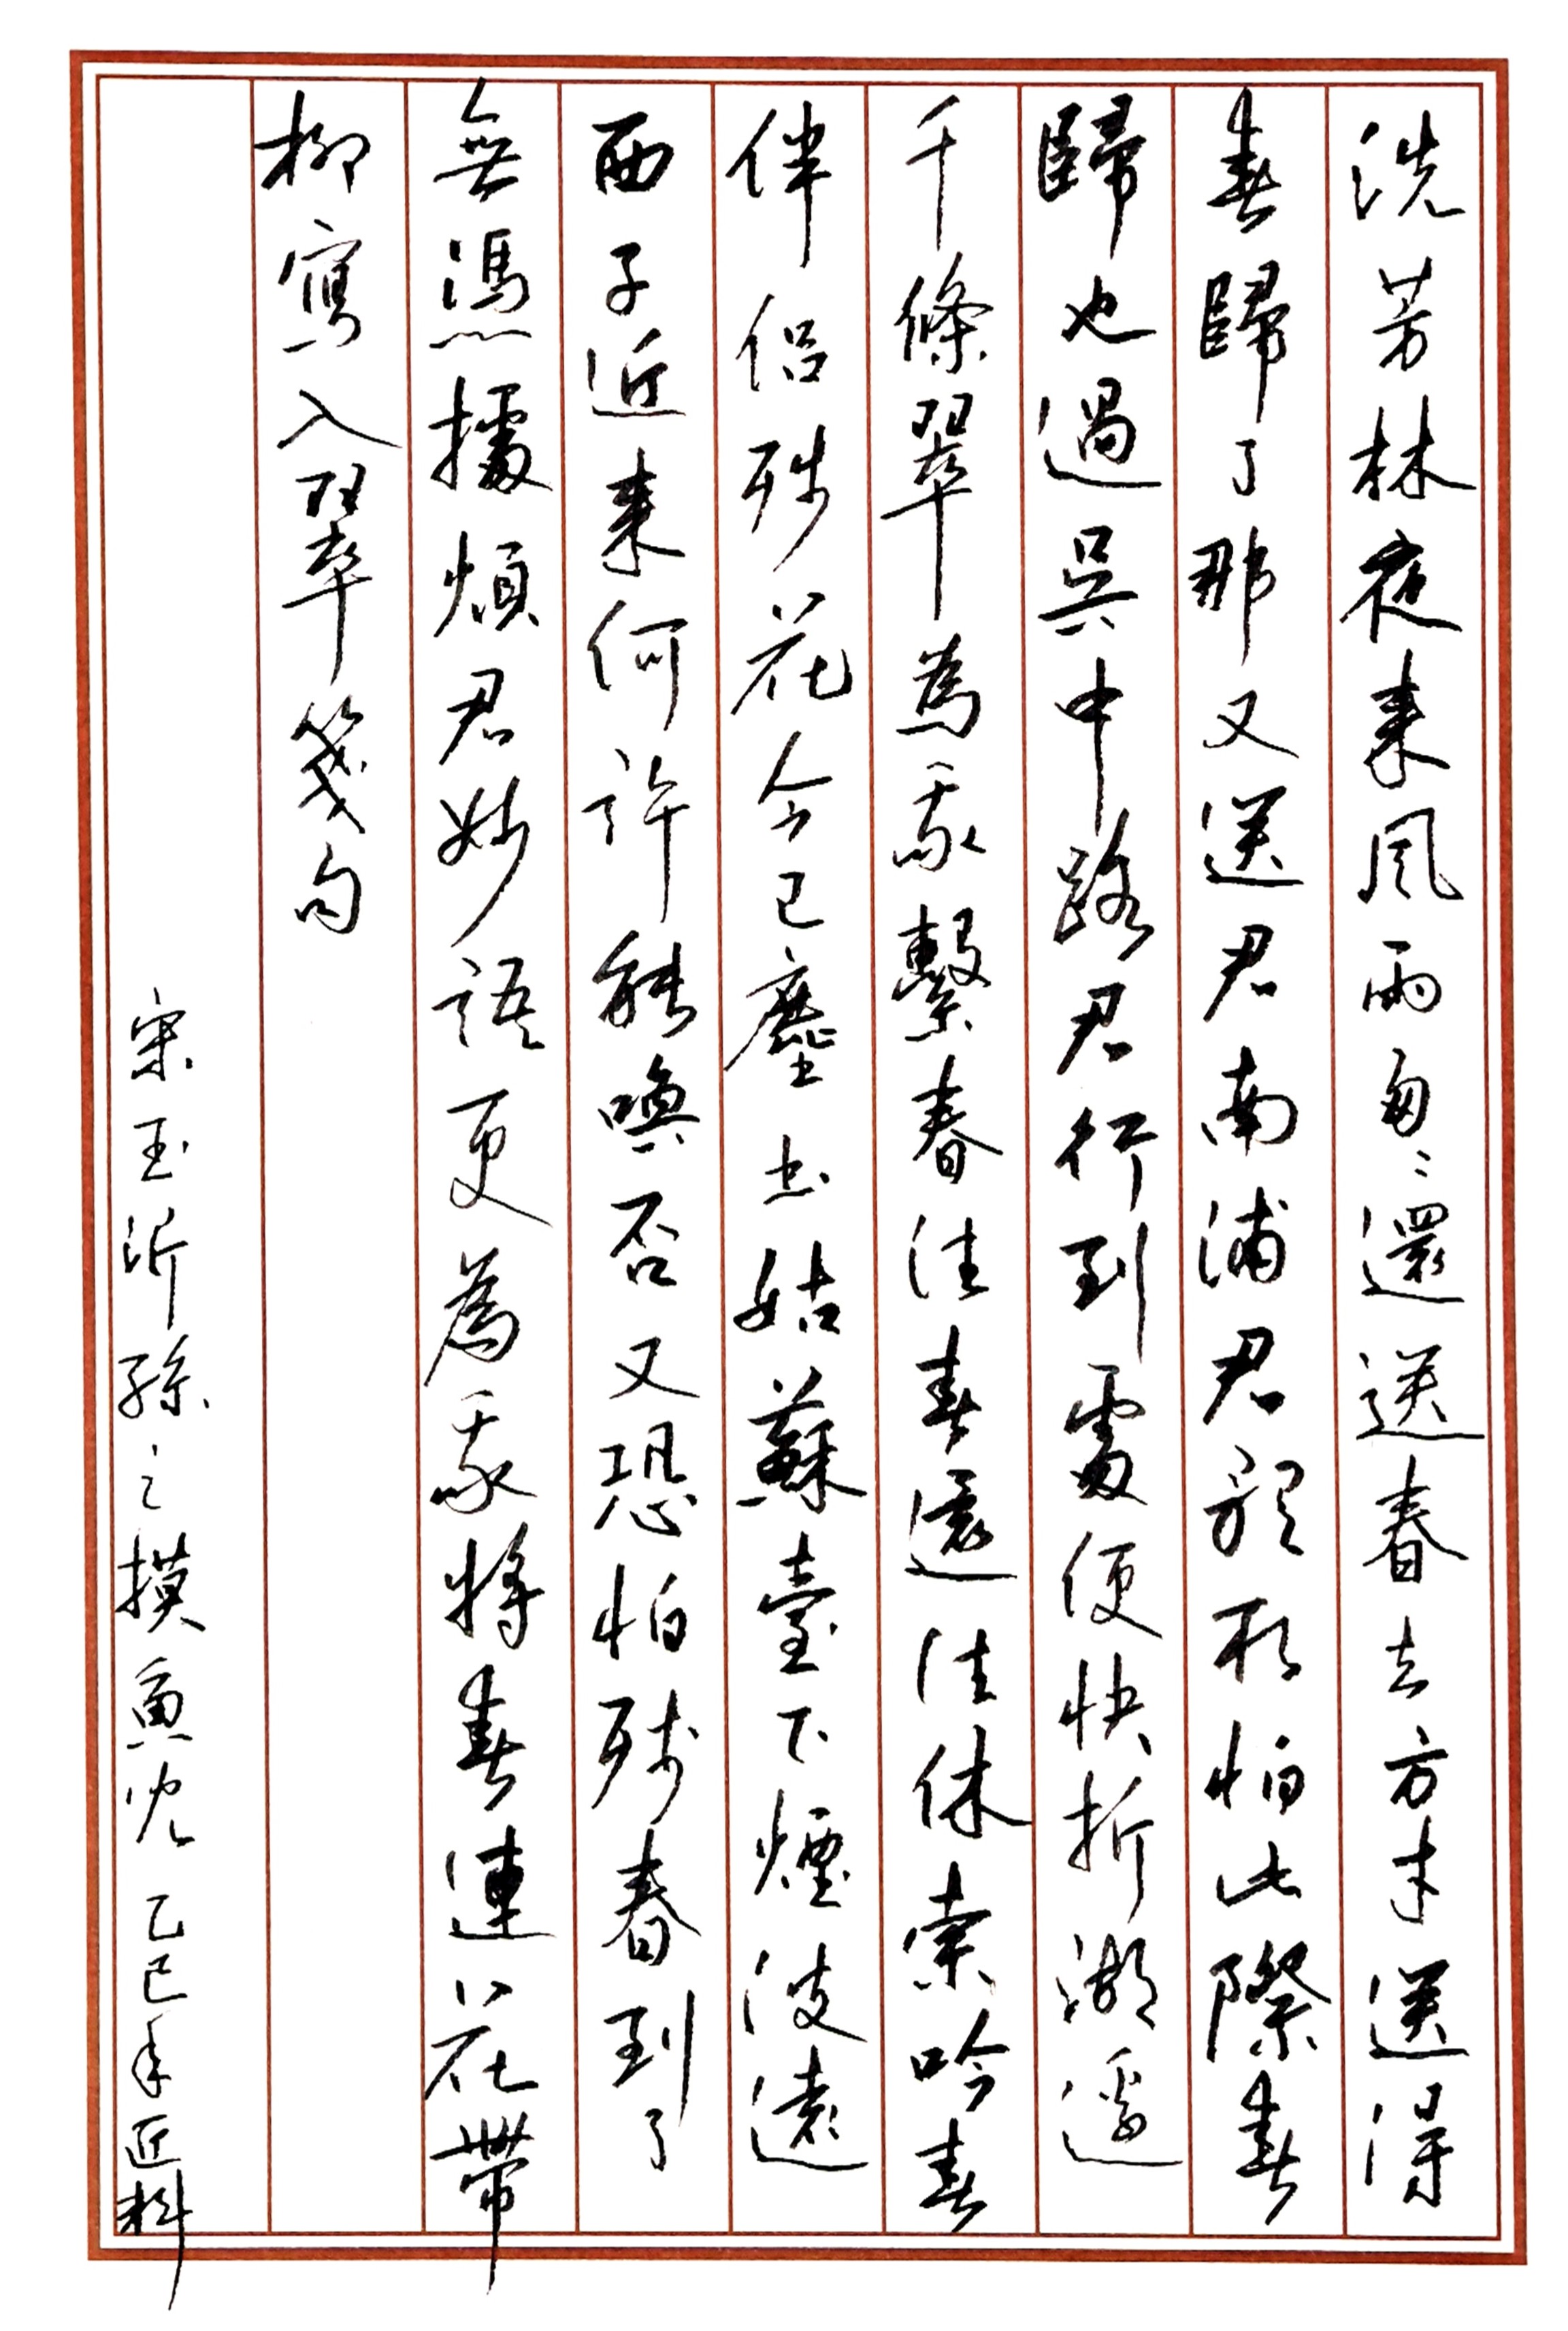 洗芳林夜来風雨匆々還送春去方才送得
春歸了那又送君南浦君聽取怕此際春
歸也過吳中路君行到處便快折湖邊
千條翠為我繫春住春還住休索吟春
伴侶殘花今已塵土姑蘇臺下煙波遠
西子近来何許能喚否又恐怕殘春到了
無憑據煩君妙語更為我將春連花帶
柳寫入翠箋句
宋王沂孫之摸魚兒 乙巳年匠科